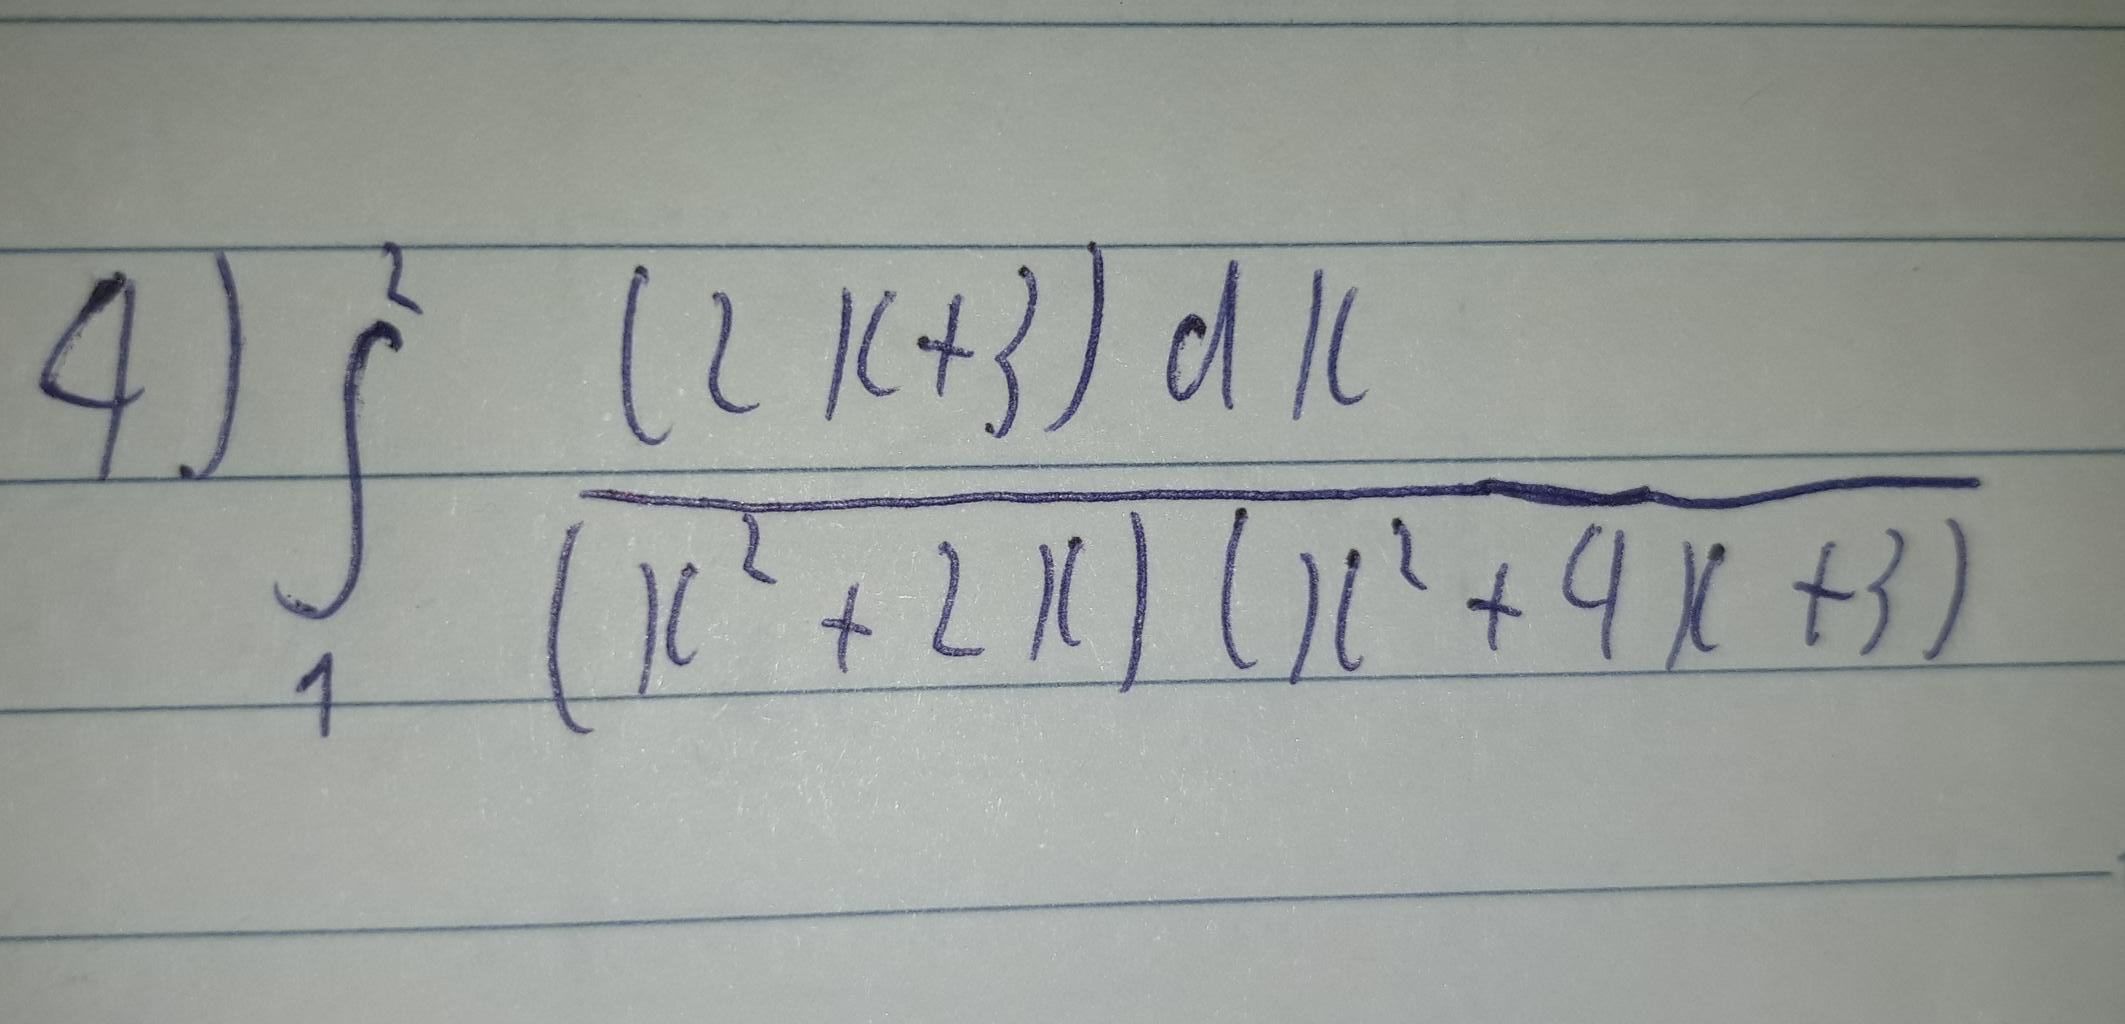 4.) ∫₁² (2x+3)dx / (x²+2x)(x²+4x+3)